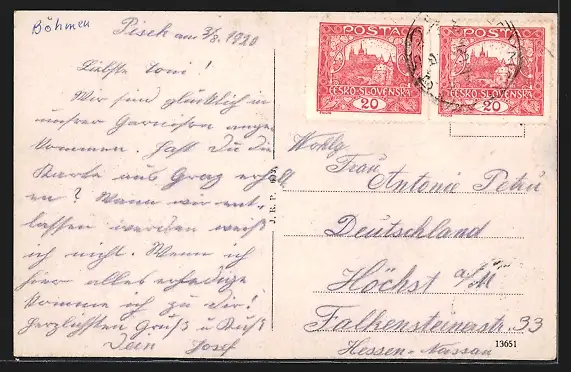 Böhmen
Pisek am 3/8. 1920
Liebste Toni!
Wir sind glücklich in
unsrer Garnison ange-
kommen. Hast Du die
Karte aus Graz erhalt
en? Wann wir ent-
lassen werden weiß
ich nicht. Wenn ich
hier alles erledige
komme ich zu Dir!
Herzlichsten Gruß u Kuß
Dein Josef
POSTA
ČESKO-SLOVENSKÁ
20
POSTA
ČESKO-SLOVENSKÁ
20
J. R. P.
Wohlg
Frau
Antonie Petru
Deutschland
Höchst a/M
Falkensteinerstr. 33
Hessen-Nassau
13651